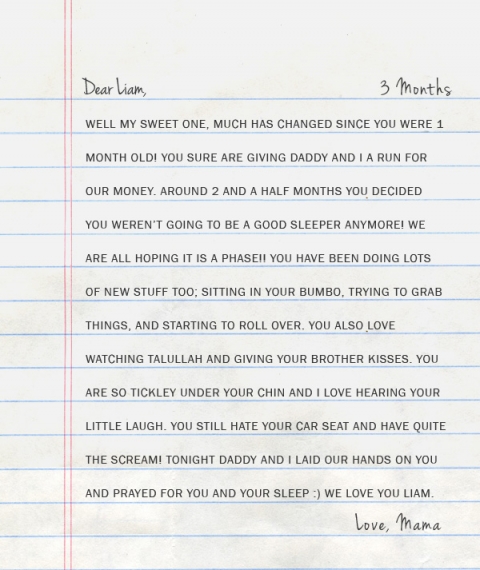 Dear Liam, 3 Months
WELL MY SWEET ONE, MUCH HAS CHANGED SINCE YOU WERE 1
MONTH OLD! YOU SURE ARE GIVING DADDY AND I A RUN FOR
OUR MONEY. AROUND 2 AND A HALF MONTHS YOU DECIDED
YOU WEREN'T GOING TO BE A GOOD SLEEPER ANYMORE! WE
ARE ALL HOPING IT IS A PHASE!! YOU HAVE BEEN DOING LOTS
OF NEW STUFF TOO; SITTING IN YOUR BUMBO, TRYING TO GRAB
THINGS, AND STARTING TO ROLL OVER. YOU ALSO LOVE
WATCHING TALULLAH AND GIVING YOUR BROTHER KISSES. YOU
ARE SO TICKLEY UNDER YOUR CHIN AND I LOVE HEARING YOUR
LITTLE LAUGH. YOU STILL HATE YOUR CAR SEAT AND HAVE QUITE
THE SCREAM! TONIGHT DADDY AND I LAID OUR HANDS ON YOU
AND PRAYED FOR YOU AND YOUR SLEEP :) WE LOVE YOU LIAM.
Love, Mama